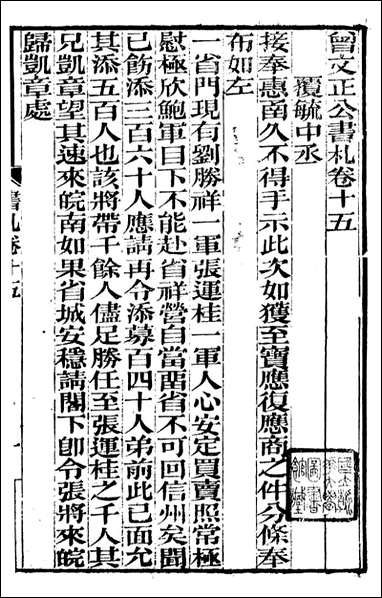 曾文正公書札卷十五
覆毓中丞
接奉惠函久不得手示此次如獲至寶應復應商之件分條奉
布如左
一省門現有劉勝祥一軍張運桂一軍人心安定買賣照常極
慰極欣鮑軍目下不能赴省祥營自當留省不可回信州矣聞
已飭添三百六十人應請再令添募百四十人弟前此已面允
其添五百人也該將帶千餘人儘足勝任至張運桂之千人其
兄凱章望其速來皖南如果省城安穩請閣下卽令張將來皖
歸凱章處
書札卷十五
一